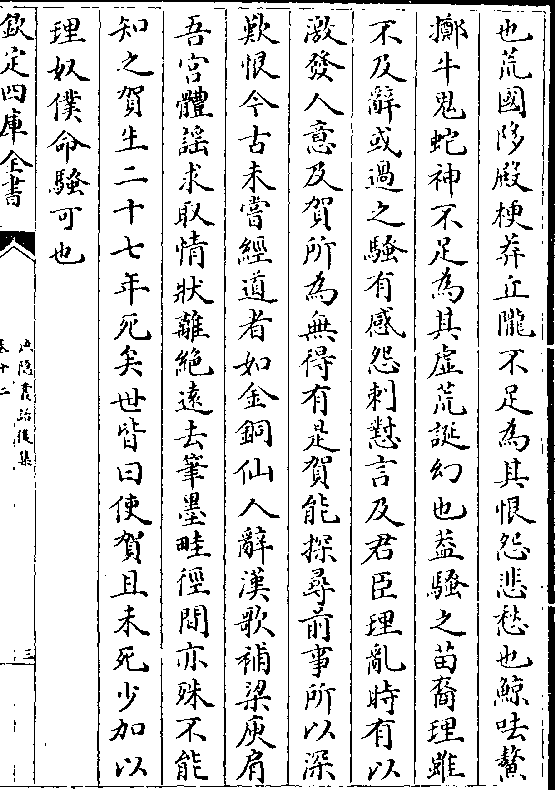 也荒國陊殿梗莽丘隴不足為其恨怨悲愁也鯨呿鼇
擲牛鬼蛇神不足為其虚荒誕幻也葢騷之苗裔理雖
不及辭或過之騷有感怨刺懟言及君臣理亂時有以
激發人意及賀所為無得有是賀能探尋前事所以深
歎恨今古未嘗經道者如金銅仙人辭漢歌補梁庾肩
吾宫體謡求取情狀離絶遠去筆墨畦徑間亦殊不能
知之賀生二十七年死矣世皆曰使賀且未死少加以
理奴僕命騷可也
欽定四庫全書
漁隱叢話後集
卷十二
三